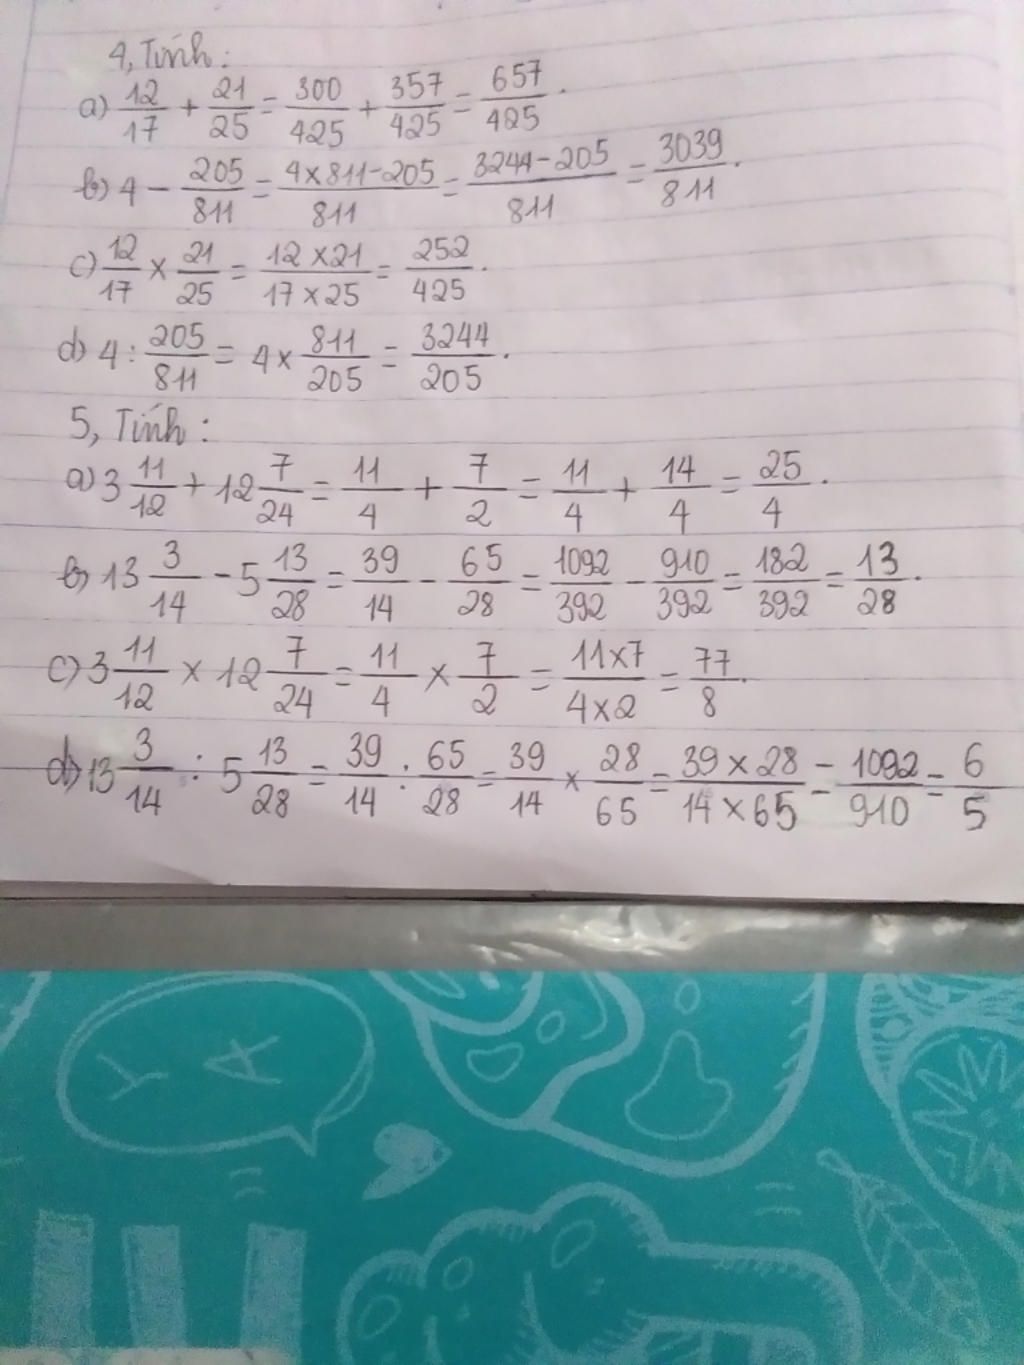 4, Tính:
a) 12/17 + 21/25 = 300/425 + 357/425 = 657/425.
b) 4 - 205/811 = 4x811-205/811 = 3244-205/811 = 3039/811.
c) 12/17 x 21/25 = 12x21/17x25 = 252/425.
d) 4 : 205/811 = 4 x 811/205 = 3244/205.
5, Tính:
a) 3 11/12 + 12 7/24 = 11/4 + 7/2 = 11/4 + 14/4 = 25/4.
b) 13 3/14 - 5 13/28 = 39/14 - 65/28 = 1092/392 - 910/392 = 182/392 = 13/28.
c) 3 11/12 x 12 7/24 = 11/4 x 7/2 = 11x7/4x2 = 77/8.
d) 13 3/14 : 5 13/28 = 39/14 : 65/28 = 39/14 x 28/65 = 39x28/14x65 = 1092/910 = 6/5
YA